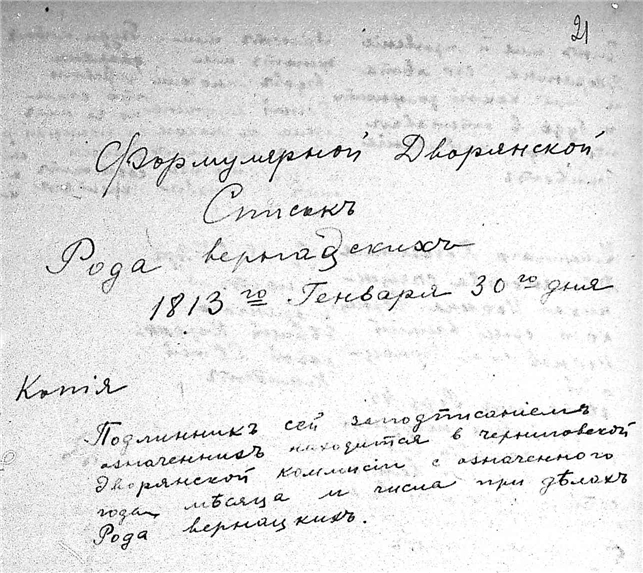 21
Формулярной Дворянской
Списокъ
Рода вернадскихъ
1813го Генваря 30го дня
Копія
Подлинникъ сей заподписаніемъ
означенныхъ находится в черниговской
дворянской коммисіи с означенного
года мѣсяца и числа при дѣлахъ
Рода вернацкихъ.